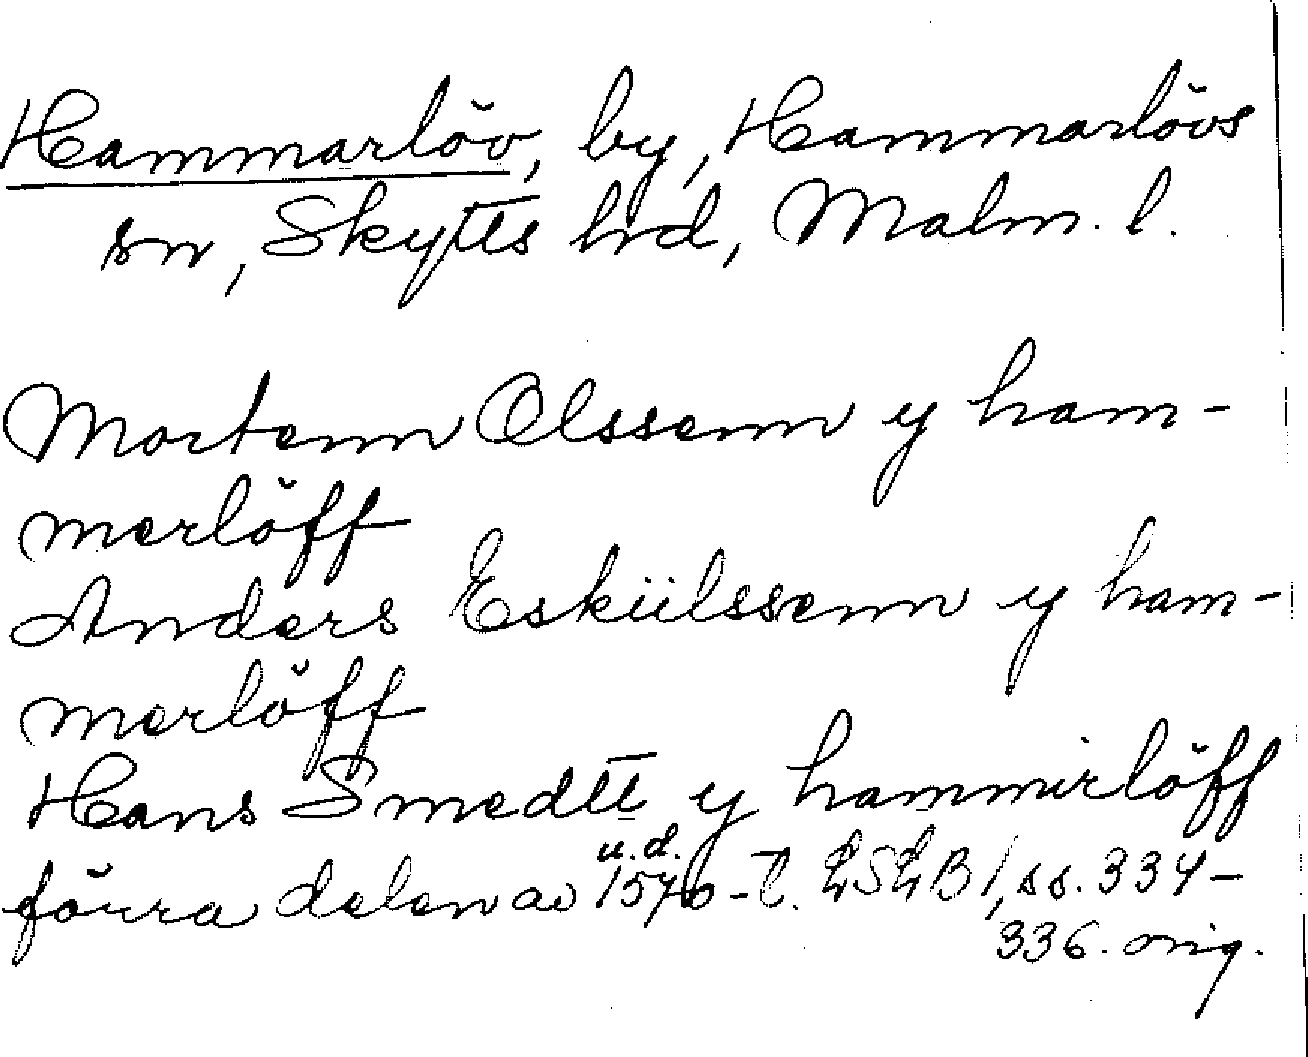 Hammarlöv, by, Hammarlövs
sn, Skytts hrd, Malm. l.
Mortenn Olssenn y ham-
merlöff
Anders Eskiilssenn y ham-
merlöff
Hans Smedtt y hammirlöff
u.d.
förra delen av 1570-t. LSLB 1, ss. 334-
336. orig.